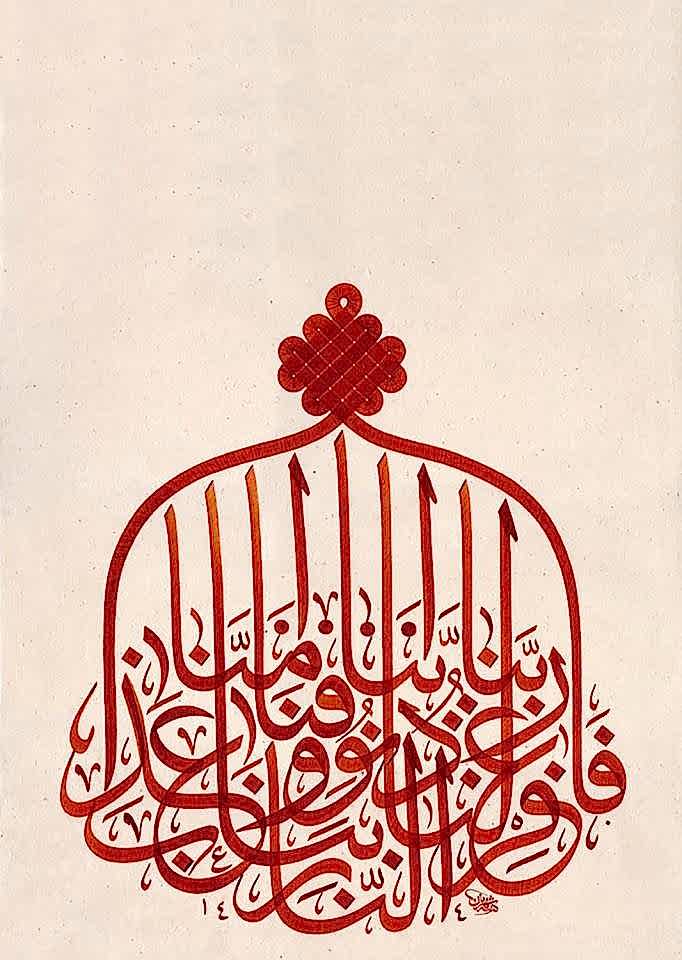 رَبَّنَا إِنَّنَا آمَنَّا فَاغْفِرْ لَنَا ذُنُوبَنَا وَقِنَا عَذَابَ النَّارِ